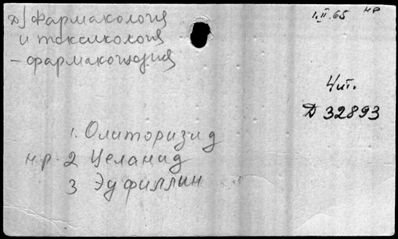 Д) Фармакология
и токсикология
- фармакогнозия
1.II.65 нр
Чит.
Д 32893
1. Олиторизид
нр. 2 Целанид
3 Эуфиллин